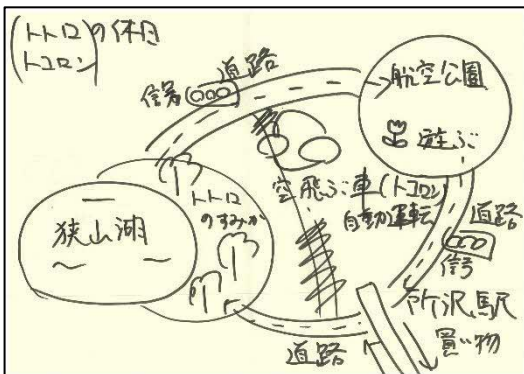 (トトロ
トコロン)の休日
道路
信号
航空公園
遊ぶ
トトロ
のすみか
狭山湖
空飛ぶ車(トコロン)
自動運転
道路
信号
所沢駅
買い物
道路